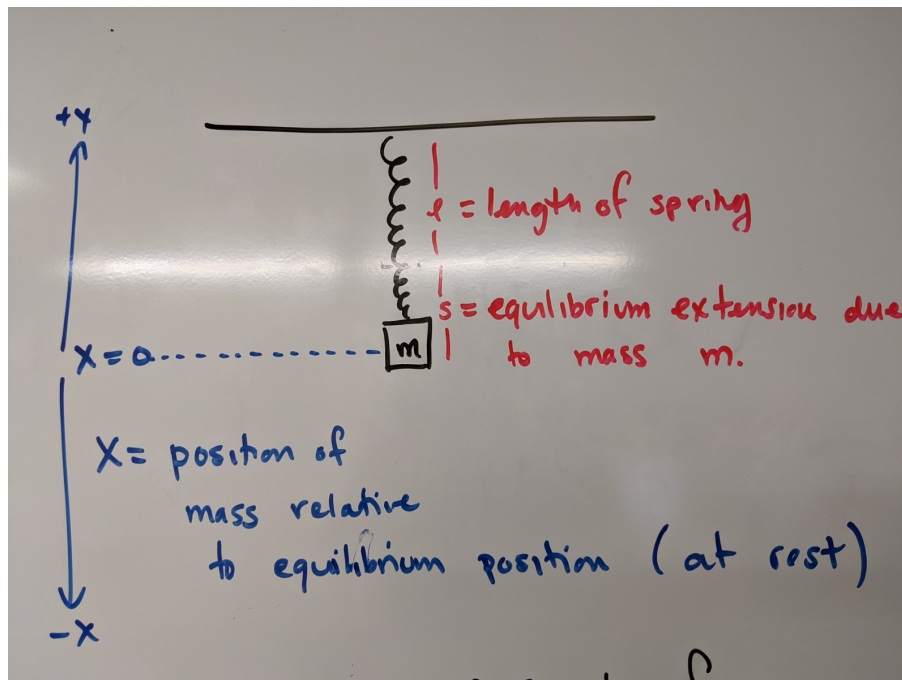 +X
ℓ = length of spring
s = equlibrium extension due
to mass m.
m
X = 0
X = position of
mass relative
to equilibrium position (at rest)
-X